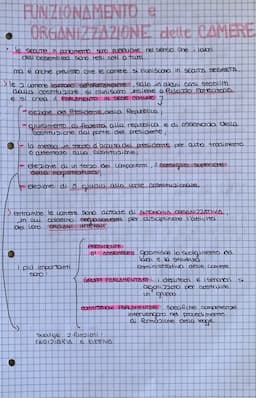 FUNZIONAMENTO e
ORGANIZZAZIONE delle CAMERE
le sedute in parlamento sono pubbliche nel senso che i lavori
dell'assemblea sono resi noti a tutti
ma è anche previsto che le camere si riuniscano in seduta segreta.
le 2 camere lavorano separatamente, solo in alcuni casi stabiliti
dalla costituzione si riuniscono insieme a Palazzo Montecitorio
e si crea il PARLAMENTO IN SEDUTA COMUNE
elezione del Presidente della Repubblica
giuramento di fedeltà alla repubblica e di osservanza della
costituzione da parte del presidente
la messa in stato d'accusa del presidente per alto tradimento
e attentato alla costituzione
elezione di un terzo dei componenti consiglio superiore
della magistratura
elezione di 5 giudici della corte costituzionale.
entrambe le camere sono dotate di AUTONOMIA ORGANIZZATIVA,
in cui adottano regolamento per disciplinare l'attività
dei loro organi interni
PRESIDENTE
DI ASSEMBLEA garantisce lo svolgimento dei
lavori e la
amministrativa delle camere
i più importanti
sono
GRUPPI PARLAMENTARI i deputati e i senatori si
organizzano per costituire
un gruppo
COMMISSIONI PARLAMENTARI specifiche competenze
intervengono nel procedimento
di formazione della legge.
svolge 2 funzioni: